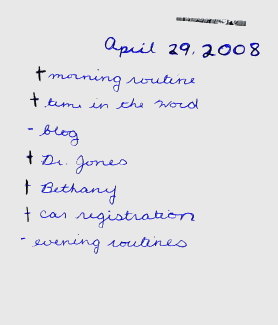 April 29, 2008
† morning routine
† time in the Word
- blog
† Dr. Jones
† Bethany
† car registration
- evening routines